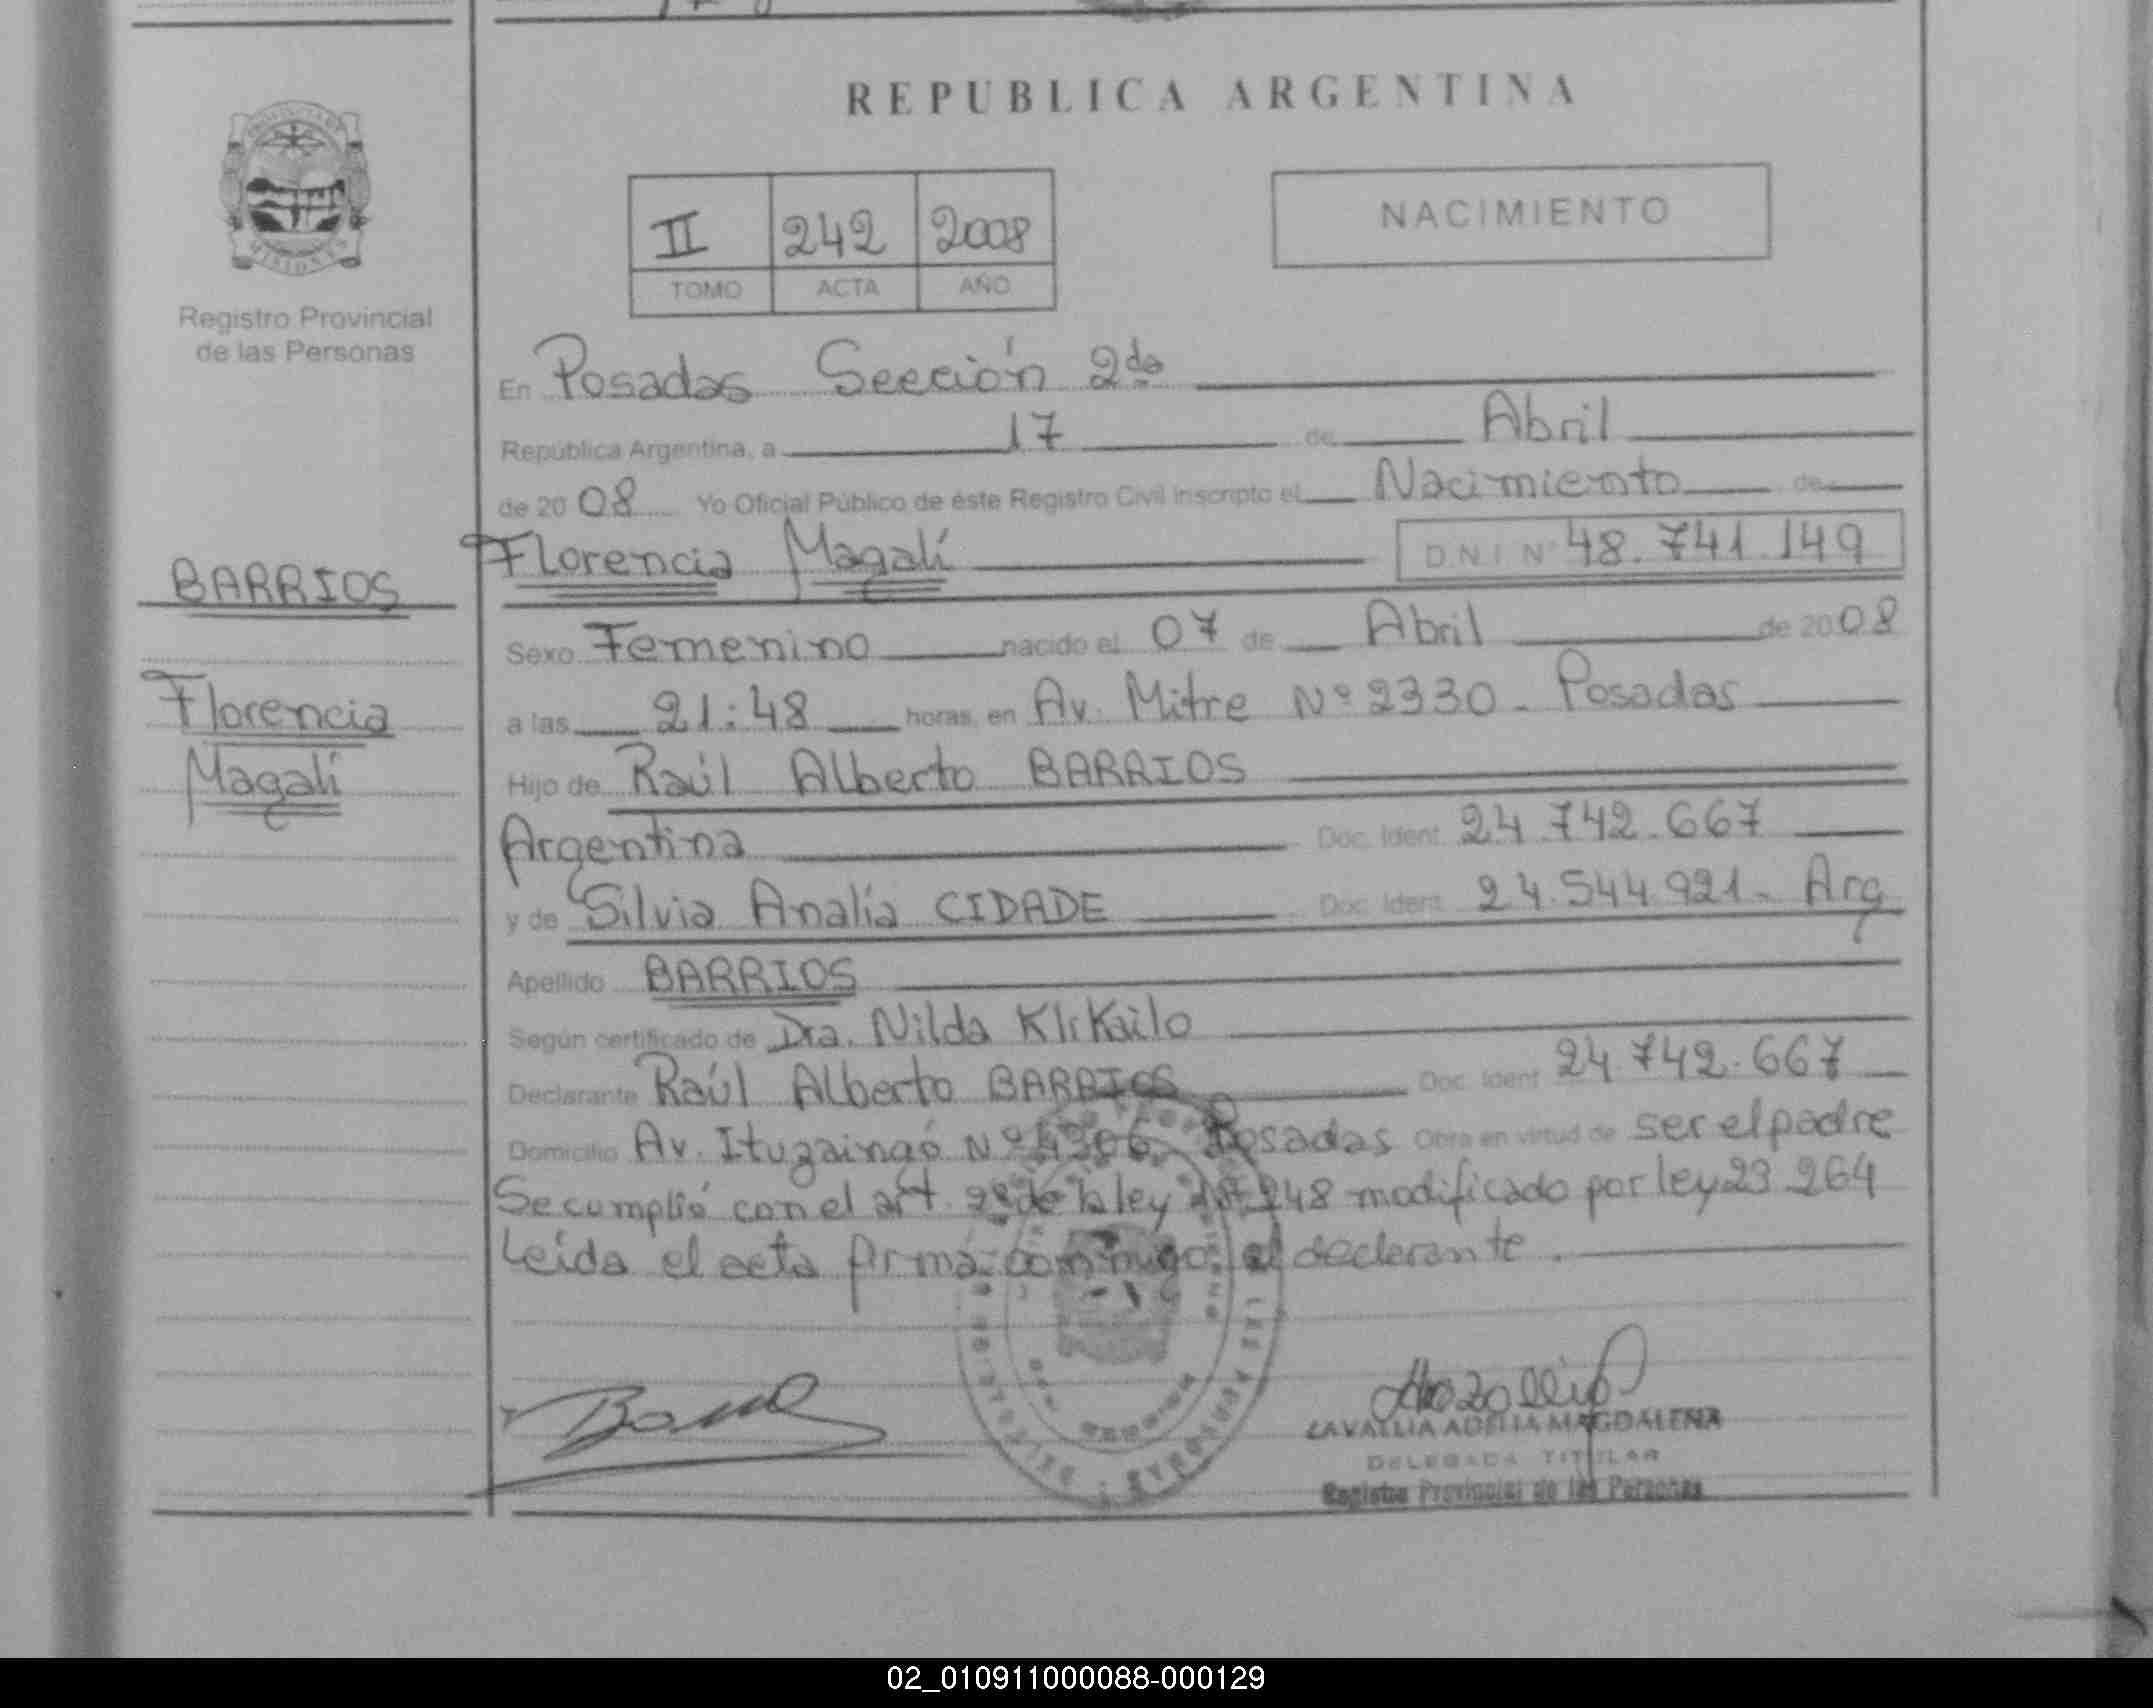 REPUBLICA ARGENTINA
II 242 2008
TOMO ACTA AÑO
NACIMIENTO
Registro Provincial
de las Personas
En Posadas Sección 2da
República Argentina, a 17 de Abril
de 2008 Yo Oficial Público de éste Registro Civil inscripto el Nacimiento de
Florencia Magalí D.N.I Nº 48.741.149
BARRIOS
Florencia
Magalí
Sexo Femenino nacido el 07 de Abril de 2008
a las 21:48 horas, en Av. Mitre Nº 2330 - Posadas
Hijo de Raúl Alberto BARRIOS
Argentina Doc. Ident. 24.742.667
y de Silvia Analía CIDADE Doc. Ident. 24.544.921- Arg
Apellido BARRIOS
Según certificado de Dra. Nilda KliKailo
Declarante Raúl Alberto BARRIOS Doc. Ident. 24.742.667
Domicilio Av. Ituzaingó Nº Posadas Obra en virtud de ser el padre
Se cumplió con el art. de la ley modificado por ley 23.264
Leída el acta firma conmigo el declarante.
LAVALLIA ADELIA MAGDALENA
DELEGADA TITULAR
Registro Provincial de las Personas
02_010911000088-000129